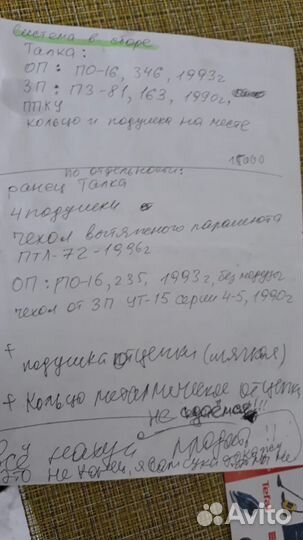 Система в сборе
Талка:
ОП: ПО-16, 346, 1993г
ЗП: ПЗ-81, 163, 1990г,
ППКУ
кольцо и подушка на месте
15000
по отдельности:
ранец Талка
4 подушки
чехол вытяжного парашюта
ПТЛ-72-1996г
ОП: ПО-16, 235, 1993г, без
чехол от ЗП УТ-15 серии 4-5, 1990г
+ подушка отцепки (мягкая)
+ Кольцо металическое отцепки
не сдаётся!!!
Всё нахуй
это не
Tefal
Avito